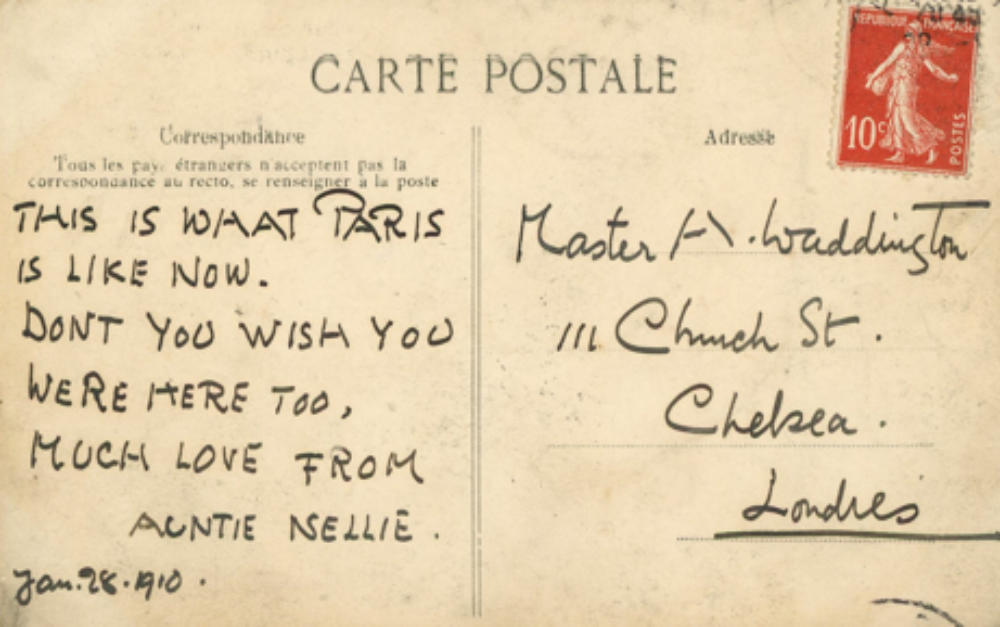 CARTE POSTALE
Correspondance
Tous les pays étrangers n'acceptent pas la
correspondance au recto, se renseigner à la poste
THIS IS WHAT PARIS
IS LIKE NOW.
DONT YOU WISH YOU
WERE HERE TOO,
MUCH LOVE FROM
AUNTIE NELLIE.
Jan. 28. 1910.
Adresse
REPUBLIQUE FRANÇAISE
10c
POSTES
Master H. Waddington
111 Church St.
Chelsea.
Londres